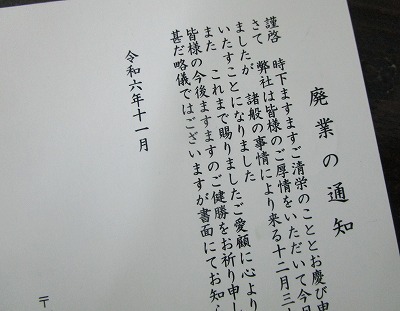 廃業の通知
謹啓　時下ますますご清栄のこととお慶び申
さて　弊社は皆様のご厚情をいただいて今日
ましたが　諸般の事情により来る十二月三十
いたすことになりました
また　これまで賜りましたご愛顧に心より
皆様の今後ますますのご健勝をお祈り申し
甚だ略儀ではございますが書面にてお知ら
令和六年十一月
〒